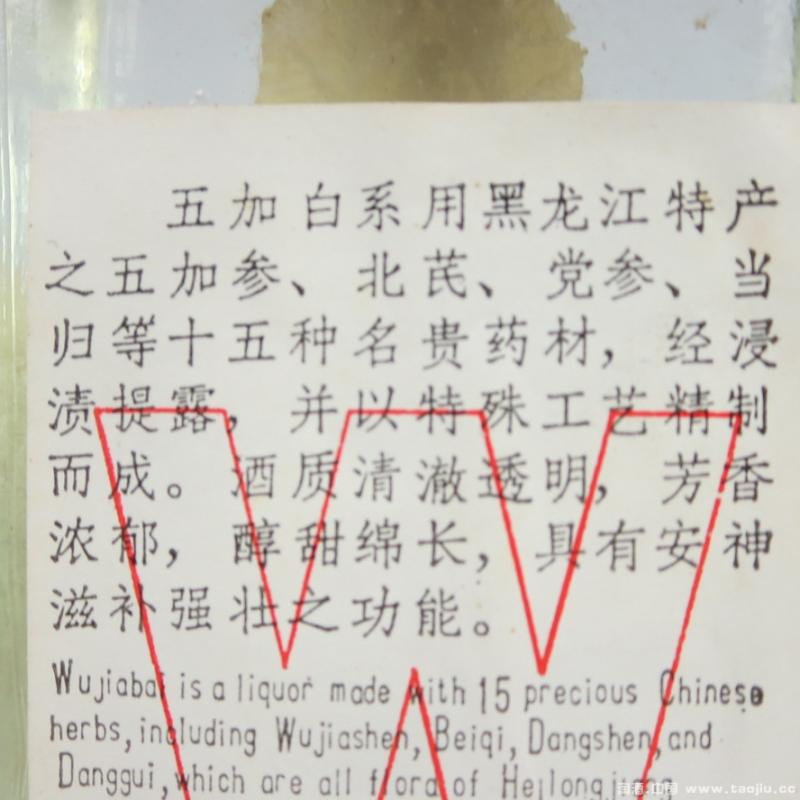 五加白系用黑龙江特产
之五加参、北芪、党参、当
归等十五种名贵药材，经浸
渍提露，并以特殊工艺精制
而成。酒质清澈透明，芳香
浓郁，醇甜绵长，具有安神
滋补强壮之功能。
Wujiabai is a liquor made with 15 precious Chinese
herbs, including Wujiashen, Beiqi, Dangshen, and
Danggui, which are all flora of Heilongjiang
www.taojiu.cc